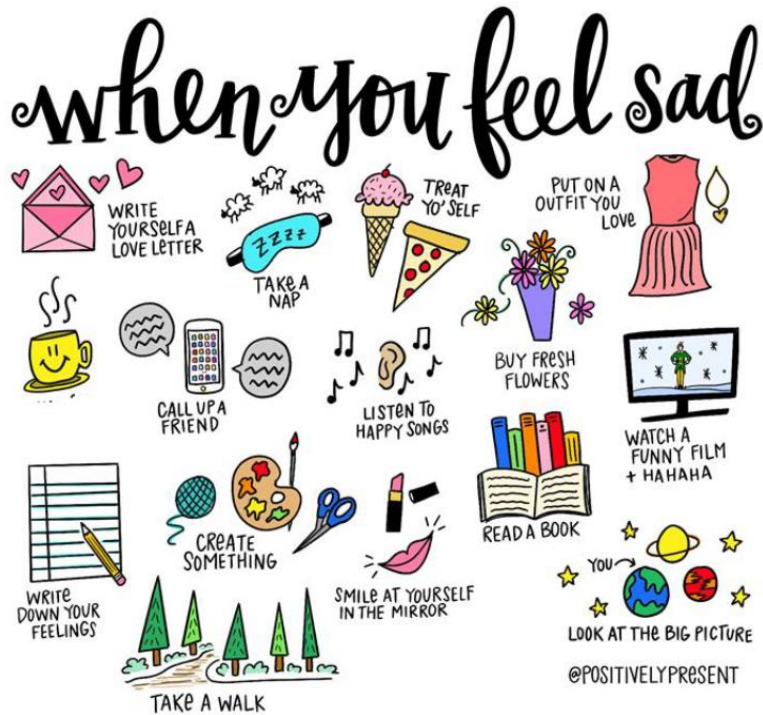 when you feel sad
WRITE
YOURSELF A
LOVE LETTER
ZZZZ
TAKE A
NAP
TREAT
YO' SELF
PUT ON A
OUTFIT YOU
LOVE
CALL UP A
FRIEND
LISTEN TO
HAPPY SONGS
BUY FRESH
FLOWERS
WATCH A
FUNNY FILM
+ HAHAHA
WRITE
DOWN YOUR
FEELINGS
CREATE
SOMETHING
SMILE AT YOURSELF
IN THE MIRROR
READ A BOOK
YOU
LOOK AT THE BIG PICTURE
TAKE A WALK
@POSITIVELYPRESENT